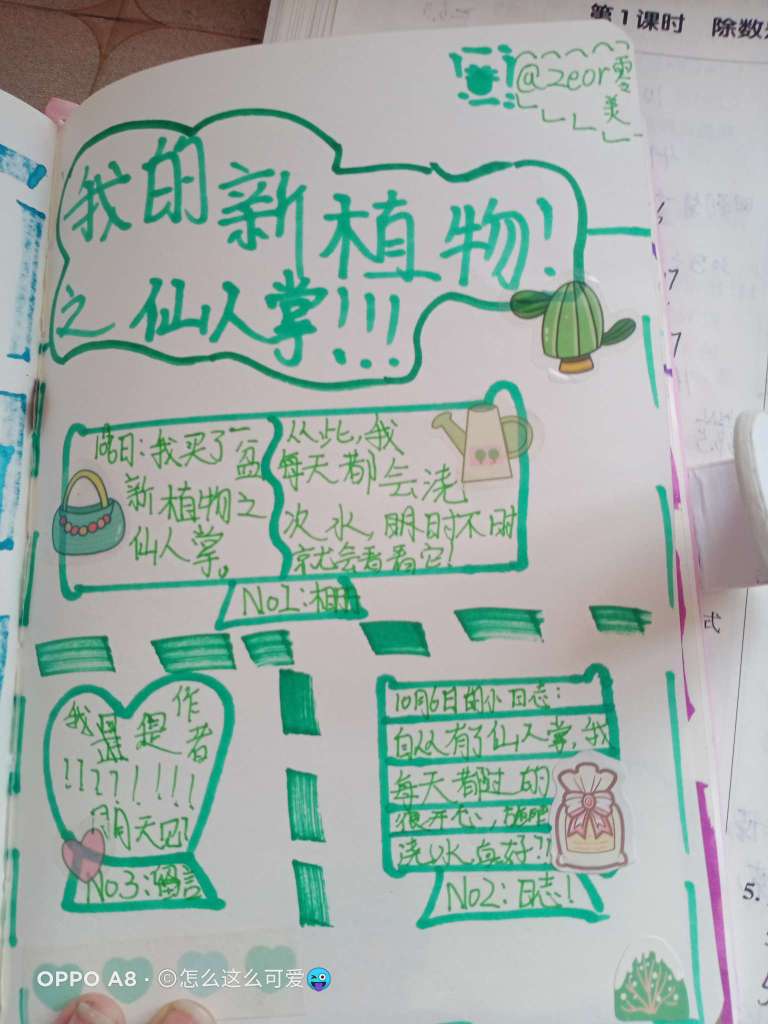 第1课时 除数
@zeor零
美
我的新植物!
之仙人掌!!!
日:我买了一盆
新植物之
仙人掌。
从此,我
每天都会浇
次水,时不时
就会看看它!
No1:相册
我是作
者
!!??!!!!
明天见!
No.3:留言
10月6日的小日志:
自从有了仙人掌,我
每天都过的
很开心,
浇水真好?!
No2:日志!
式
5.
OPPO A8 · ©怎么这么可爱😜